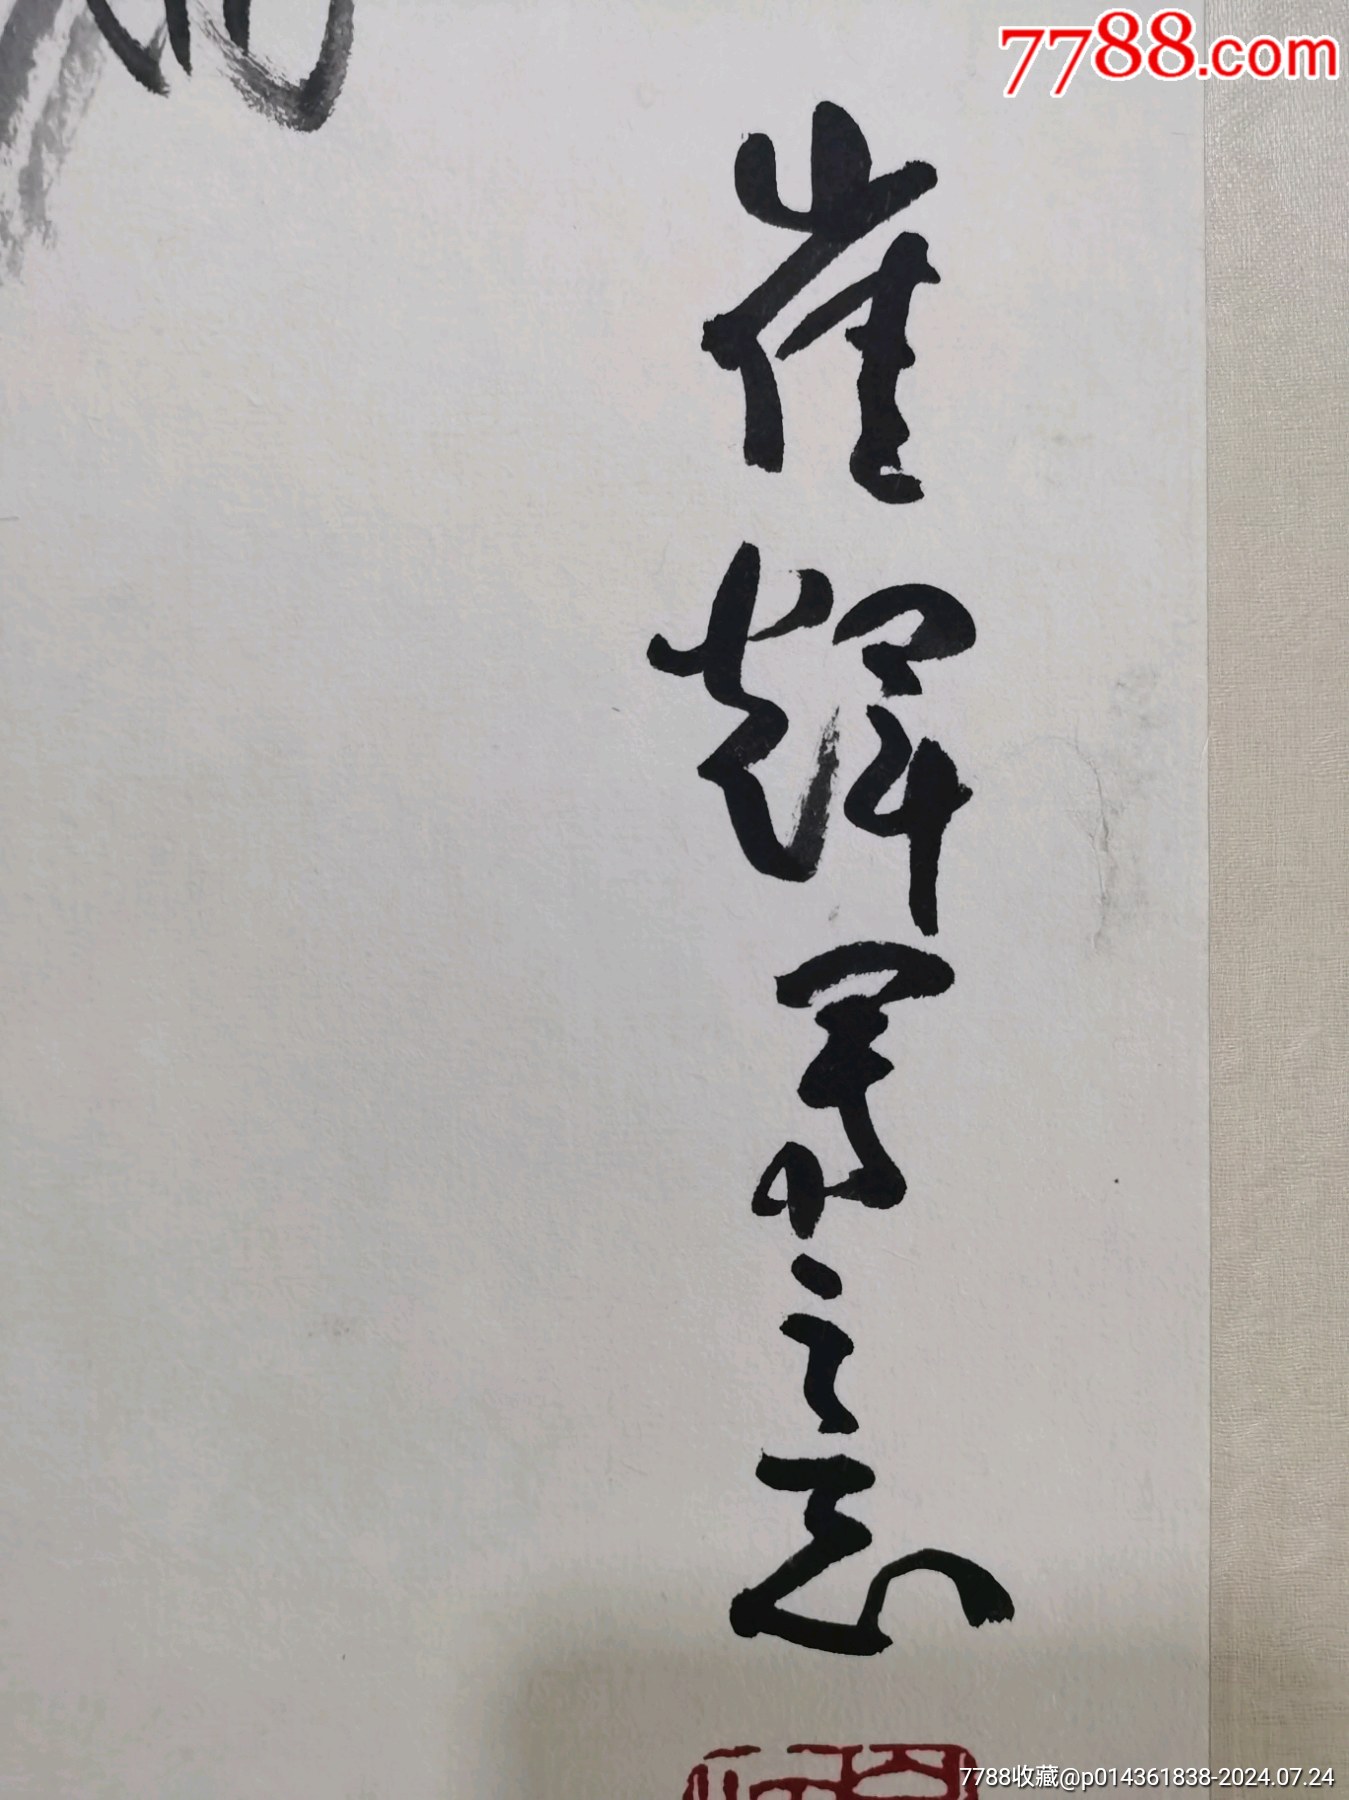 7788.com
崔辉写之志
7788收藏@p014361838-2024.07.24